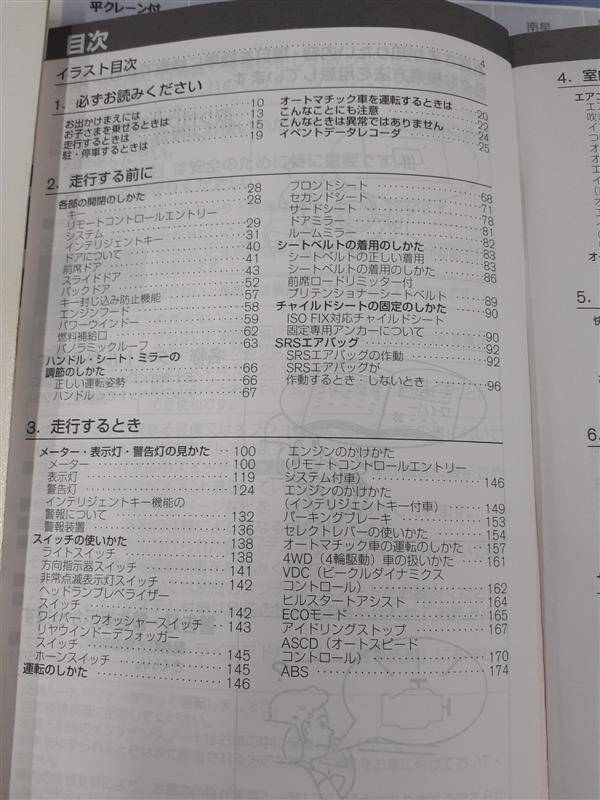 平クレーン付
目次
イラスト目次 4
1. 必ずお読みください
お出かけまえには 10
お子さまを乗せるときは 13
走行するときは 15
駐・停車するときは 19
オートマチック車を運転するときは 20
こんなことにも注意 22
こんなときは異常ではありません 24
イベントデータレコーダ 25
2. 走行する前に
各部の開閉のしかた 28
キー 28
リモートコントロールエントリー
システム 29
インテリジェントキー 31
ドアについて 40
前席ドア 41
スライドドア 43
バックドア 52
キー封じ込み防止機能 57
エンジンフード 58
パワーウインドー 59
燃料補給口 62
パノラミックルーフ 63
ハンドル・シート・ミラーの
調節のしかた 66
正しい運転姿勢 66
ハンドル 67
フロントシート 68
セカンドシート 71
サードシート 78
ドアミラー 81
ルームミラー 82
シートベルトの着用のしかた 83
シートベルトの正しい着用 83
シートベルトの着用のしかた 86
前席ロードリミッター付
プリテンショナーシートベルト 89
チャイルドシートの固定のしかた 90
ISO FIX対応チャイルドシート
固定専用アンカーについて 90
SRSエアバッグ 92
SRSエアバッグの作動 92
SRSエアバッグが
作動するとき・しないとき 96
3. 走行するとき
メーター・表示灯・警告灯の見かた 100
メーター 100
表示灯 119
警告灯 124
インテリジェントキー機能の
警報について 132
警報装置 136
スイッチの使いかた 138
ライトスイッチ 138
方向指示器スイッチ 141
非常点滅表示灯スイッチ 142
ヘッドランプレベライザー
スイッチ 142
ワイパー・ウオッシャースイッチ 143
リヤウインドーデフォッガー
スイッチ 145
ホーンスイッチ 145
運転のしかた 146
エンジンのかけかた
（リモートコントロールエントリー
システム付車） 146
エンジンのかけかた
（インテリジェントキー付車） 149
パーキングブレーキ 153
セレクトレバーの使いかた 154
オートマチック車の運転のしかた 157
4WD（4輪駆動）車の扱いかた 161
VDC（ビークルダイナミクス
コントロール） 162
ヒルスタートアシスト 164
ECOモード 165
アイドリングストップ 167
ASCD（オートスピード
コントロール） 170
ABS 174
4.
5.
6.